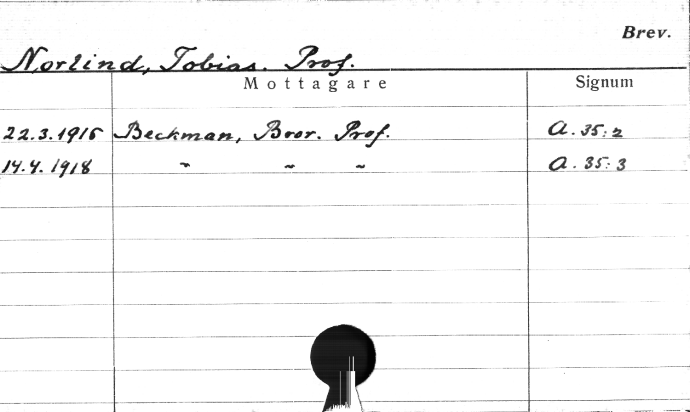 Brev.
Norlind, Tobias. Prof.
Mottagare Signum
22.3.1915 Beckman, Bror. Prof. A.35:2
14.4.1918 " " " A.35:3